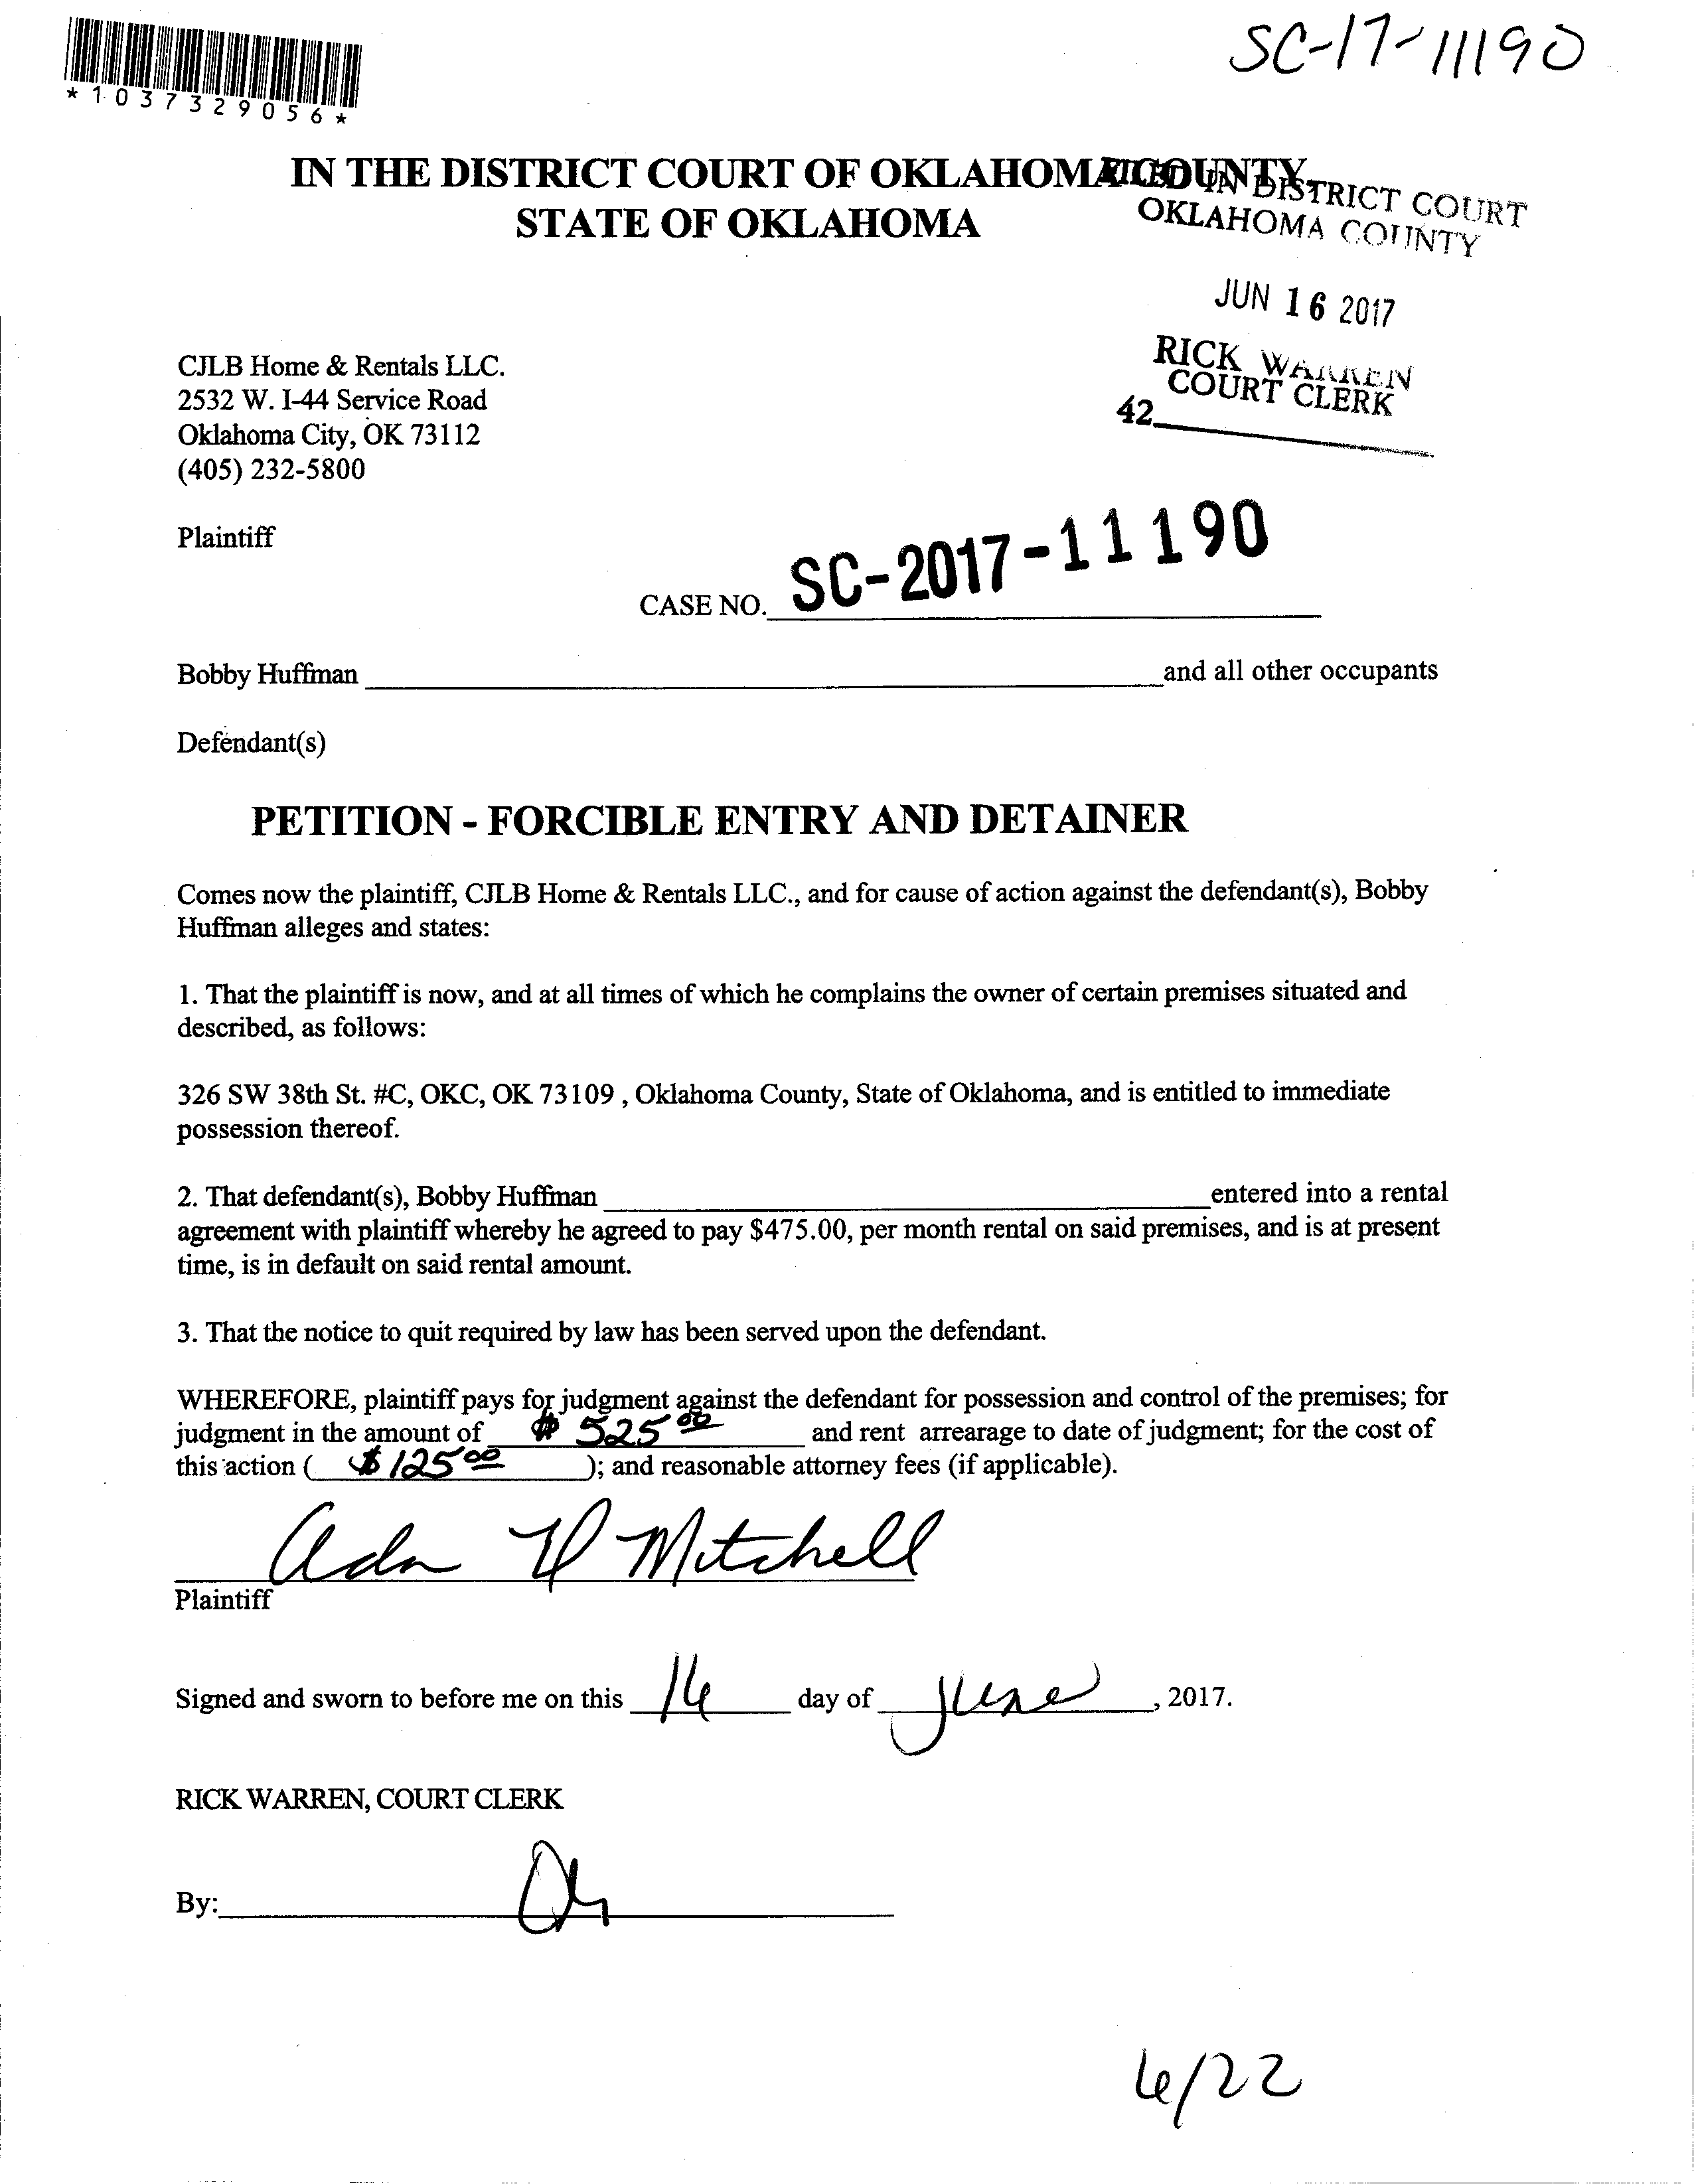 SC-17-11190
*1037329056*
IN THE DISTRICT COURT OF OKLAHOMA COUNTY,
STATE OF OKLAHOMA
FILED IN DISTRICT COURT
OKLAHOMA COUNTY
JUN 16 2017
RICK WARREN
COURT CLERK
42
CJLB Home & Rentals LLC.
2532 W. I-44 Service Road
Oklahoma City, OK 73112
(405) 232-5800
Plaintiff
CASE NO. SC-2017-11190
Bobby Huffman and all other occupants
Defendant(s)
PETITION - FORCIBLE ENTRY AND DETAINER
Comes now the plaintiff, CJLB Home & Rentals LLC., and for cause of action against the defendant(s), Bobby
Huffman alleges and states:
1. That the plaintiff is now, and at all times of which he complains the owner of certain premises situated and
described, as follows:
326 SW 38th St. #C, OKC, OK 73109 , Oklahoma County, State of Oklahoma, and is entitled to immediate
possession thereof.
2. That defendant(s), Bobby Huffman entered into a rental
agreement with plaintiff whereby he agreed to pay $475.00, per month rental on said premises, and is at present
time, is in default on said rental amount.
3. That the notice to quit required by law has been served upon the defendant.
WHEREFORE, plaintiff pays for judgment against the defendant for possession and control of the premises; for
judgment in the amount of $ 525 00 and rent arrearage to date of judgment; for the cost of
this action ( $ 125 00 ); and reasonable attorney fees (if applicable).
Mitchell
Plaintiff
Signed and sworn to before me on this 16 day of June , 2017.
RICK WARREN, COURT CLERK
By:
6/22